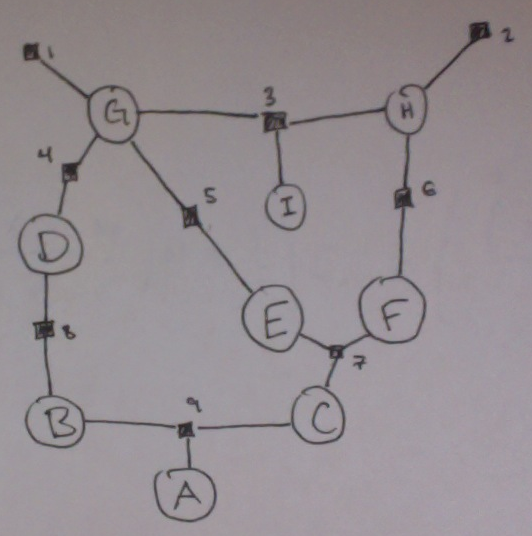 1
2
G
3
H
4
5
I
6
D
E
F
8
7
B
9
C
A